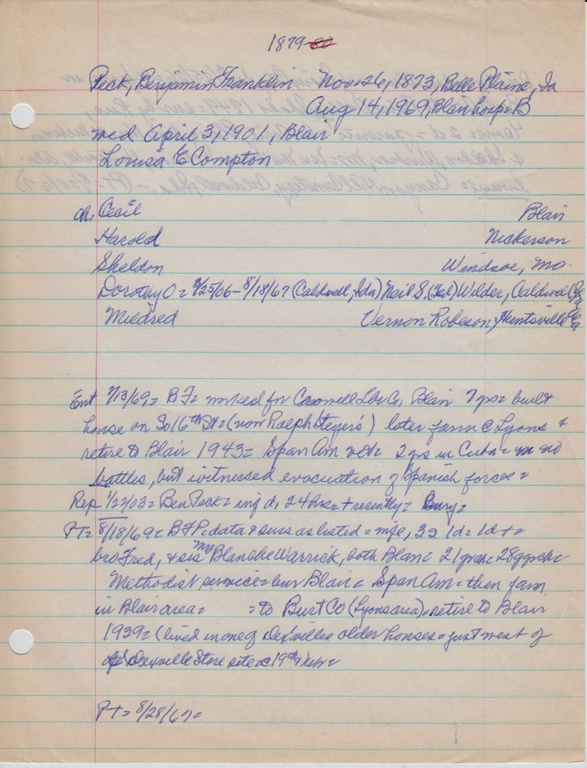 1879-80
Peck, Benjamin Franklin Nov 26, 1873, Belle Plaine, Ia
Aug 14, 1969, Blair hosp = B
med April 3, 1901, Blair
Louisa E Compton
ch, Cecil Blair
Harold Nickerson
Sheldon Windsor, Mo.
Dorothy O = 9/25/06 - 8/18/67 (Caldwell, Ida) Neil S. Wilder, Caldwell
Mildred Vernon Roberson, Huntsville
Ent 7/13/69 = B F = worked for Crowell Lbr Co, Blair 7 yrs = built
house on So 16th St = (now Ralph Steyer's) later farm @ Lyons +
retire to Blair 1943 = Span Am vet = 2 yrs in Cuba = no
battles, but witnessed evacuation of Spanish forces =
Rep 1/22/03 = Ben Peck = inf d, 24 hrs = + recently =
PT = 8/18/69 = B F P = data + surs as listed = wife, 3s 1d = 1d + =
bro Fred, + sis Mrs Blanche Warrick, both Blair 21 grch = 28 ggrch =
Methodist service = bur Blair Span Am = then farm
in Blair area = = to Burt Co (Lyons area), retire to Blair
1939 = (lived in one of DeXvilles older houses = just west of
Store site
PT = 8/28/67 =